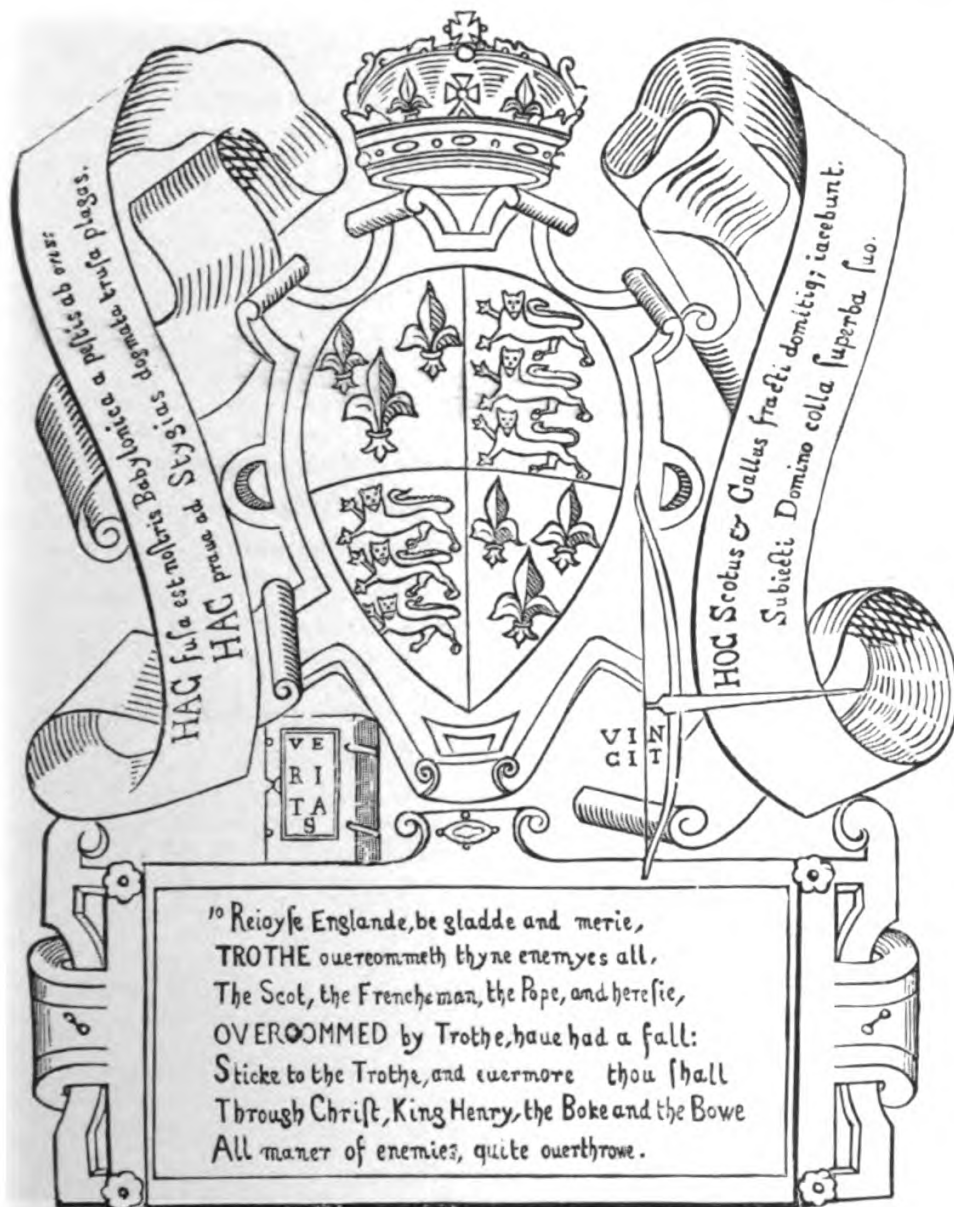 HAC fuſa est noſtris Babylonica peſtis ab oris:
HAC praua ad Stygias dogmata truſa plagas.
HOC Scotus & Gallus fracti domitiq; iacebunt.
Subiecti Domino colla ſuperba ſuo.
VE
RI
TA
S
VIN
CIT
10 Reioyſe Englande, be gladde and merie,
TROTHE ouercommeth thyne enemyes all,
The Scot, the Frencheman, the Pope, and hereſie,
OVERCOMMED by Trothe, haue had a fall:
Sticke to the Trothe, and euermore thou ſhall
Through Chriſt, King Henry, the Boke and the Bowe
All maner of enemies, quite ouerthrowe.